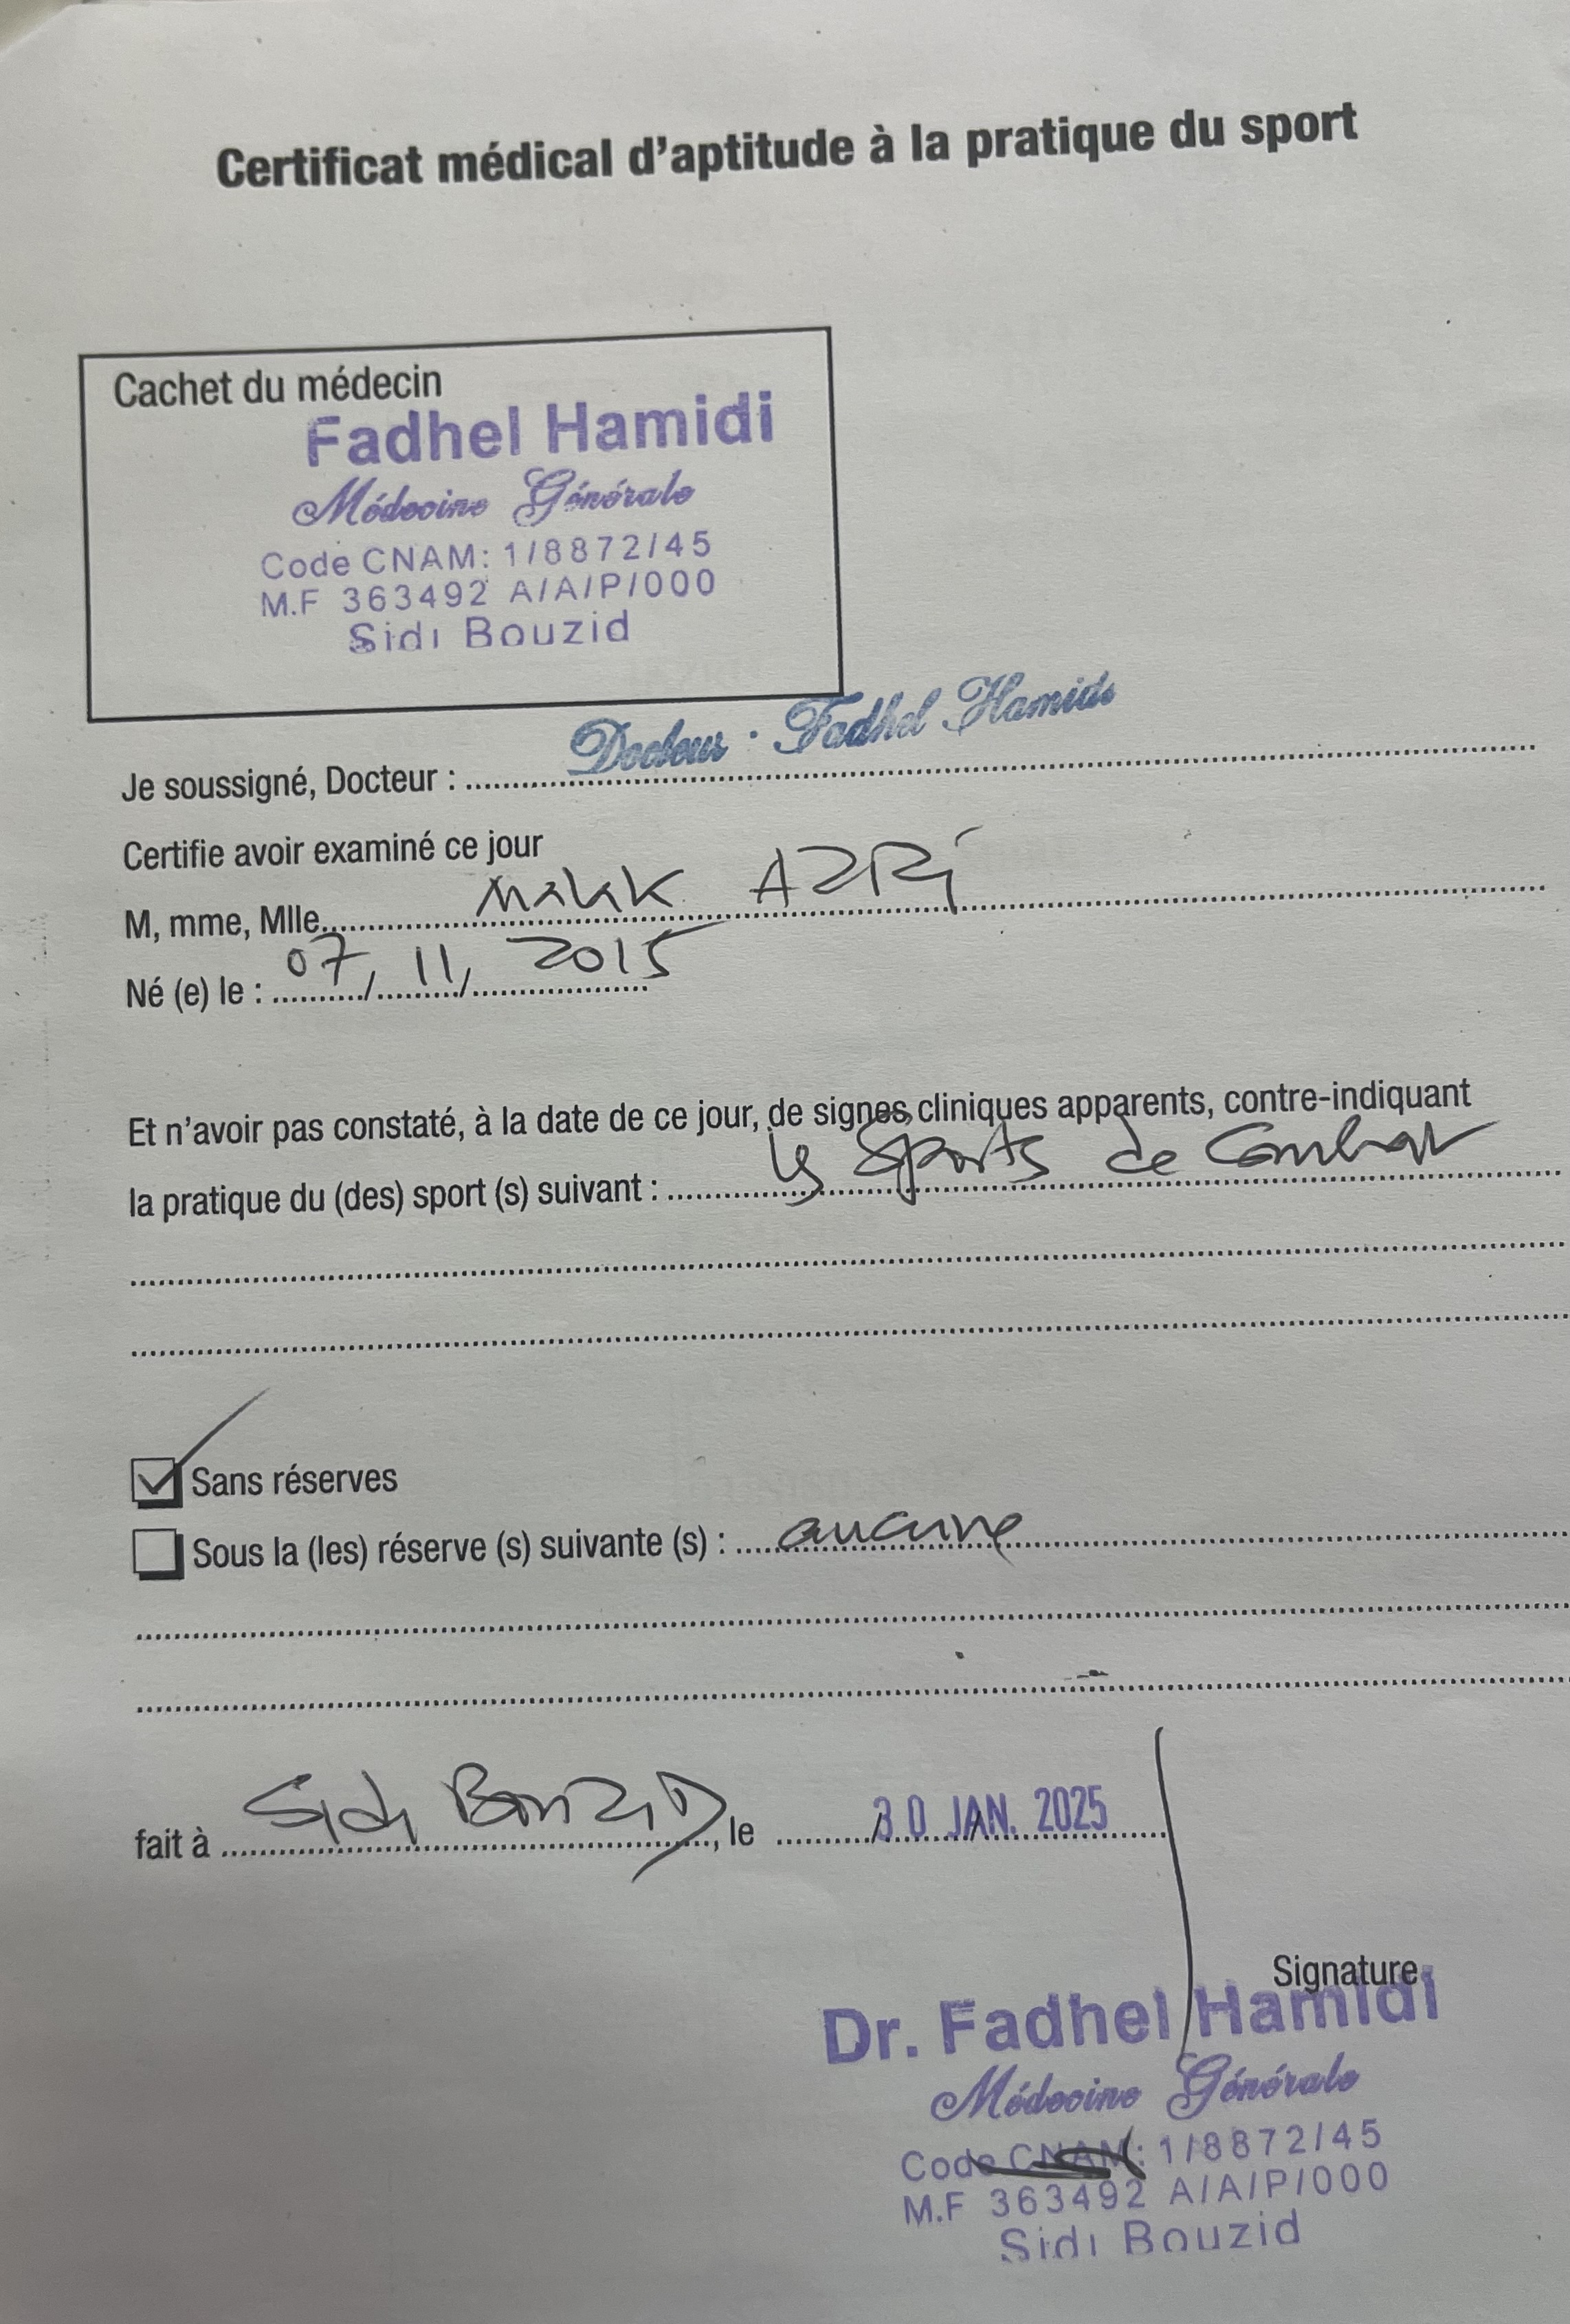 Certificat médical d'aptitude à la pratique du sport
Cachet du médecin
Fadhel Hamidi
Médecine Générale
Code CNAM: 1/8872/45
M.F 363492 A/A/P/000
Sidi Bouzid
Je soussigné, Docteur : Docteur Fadhel Hamidi
Certifie avoir examiné ce jour
M, mme, Mlle AZRi
Né (e) le : 07/11/2015
Et n'avoir pas constaté, à la date de ce jour, de signes cliniques apparents, contre-indiquant
la pratique du (des) sport (s) suivant : les Sports de Combat
Sans réserves
Sous la (les) réserve (s) suivante (s) : aucune
fait à Sidi Bouzid, le 30 JAN. 2025
Signature
Dr. Fadhel Hamidi
Médecine Générale
Code CNAM: 1/8872/45
M.F 363492 A/A/P/000
Sidi Bouzid